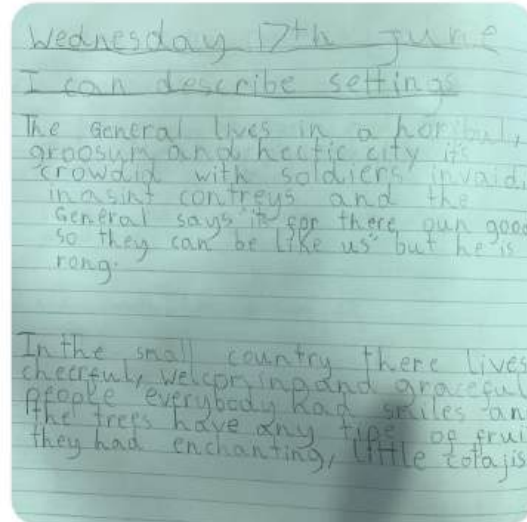 Wednesday 17th June
I can describe settings
The General lives in a horibul,
groosum and hectic city it's
crowdid with soldiers invaidi
inasint contreys and the
General says "it's for there oun good
so they can be like us" but he is
rong.
In the small country there lives
cheerful, welcoming and graceful
people everybody had smiles an
the trees have any tipe of frui
they had enchanting, little cotajis